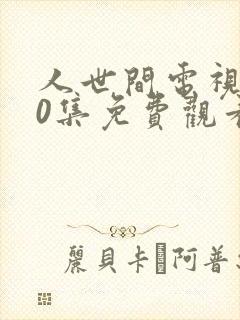 人世間電視
0集免費觀看
麗貝卡·阿普